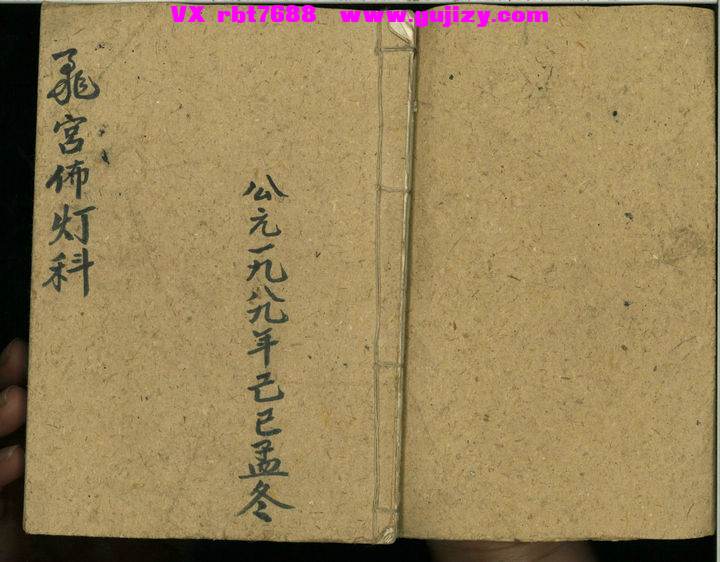 VX rbt7688 www.gujizy.com
公元一九八九年己巳孟冬
宮佈灯科